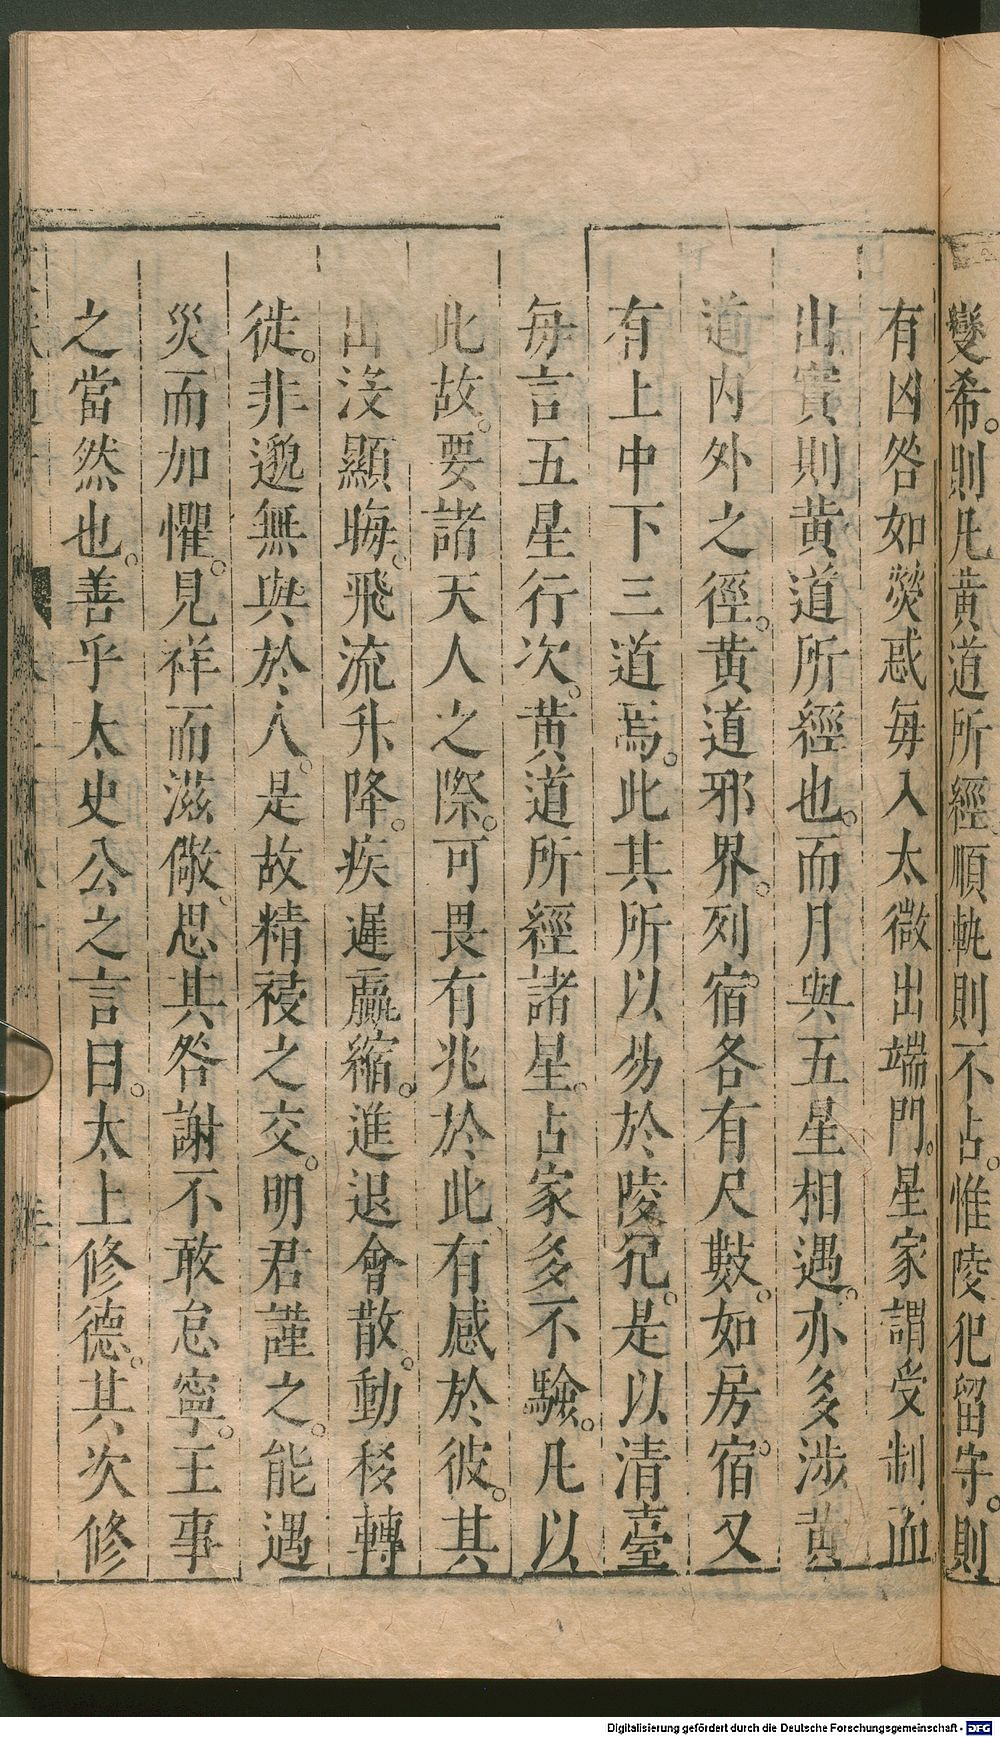 變希。則凡黃道所經順軌則不占。惟陵犯留守。則
有凶咎如熒惑每入太微出端門。星家謂受制而
出實則黃道所經也。而月與五星相遇。亦多涉黃
道內外之徑。黃道邪界。列宿。各有尺數。如房宿。又
有上中下三道焉。此其所以易於陵犯。是以清臺
每言五星行次。黃道所經諸星。占家多不驗。凡以
此故。要諸天人之際。可畏有兆於此、有感於彼。其
出沒顯晦。飛流升降。疾遲羸縮。進退會散。動移轉
徙。非邈無與於人。是故精祲之交。明君謹之。能遇
災而加懼。見祥而滋儆、思其咎謝不敢怠寧。王事
之當然也。善乎太史公之言曰。太上修德。其次修
Digitalisierung gefördert durch die Deutsche Forschungsgemeinschaft - DFG